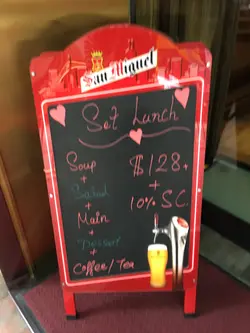 San Miguel
Set Lunch
Soup
+
Salad
+
Main
+
Dessert
+
Coffee/Tea
$128
+
10% S.C.